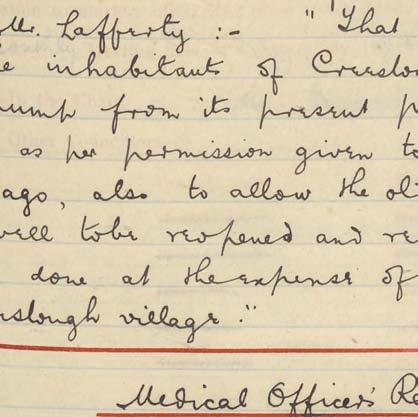 Mr. Lafferty :- "That
inhabitants of Creeslo
pump from its present p
as per permission given to
ago, also to allow the ol
well tobe reopened and re
done at the expense of
eslough village."
Medical Officer's R